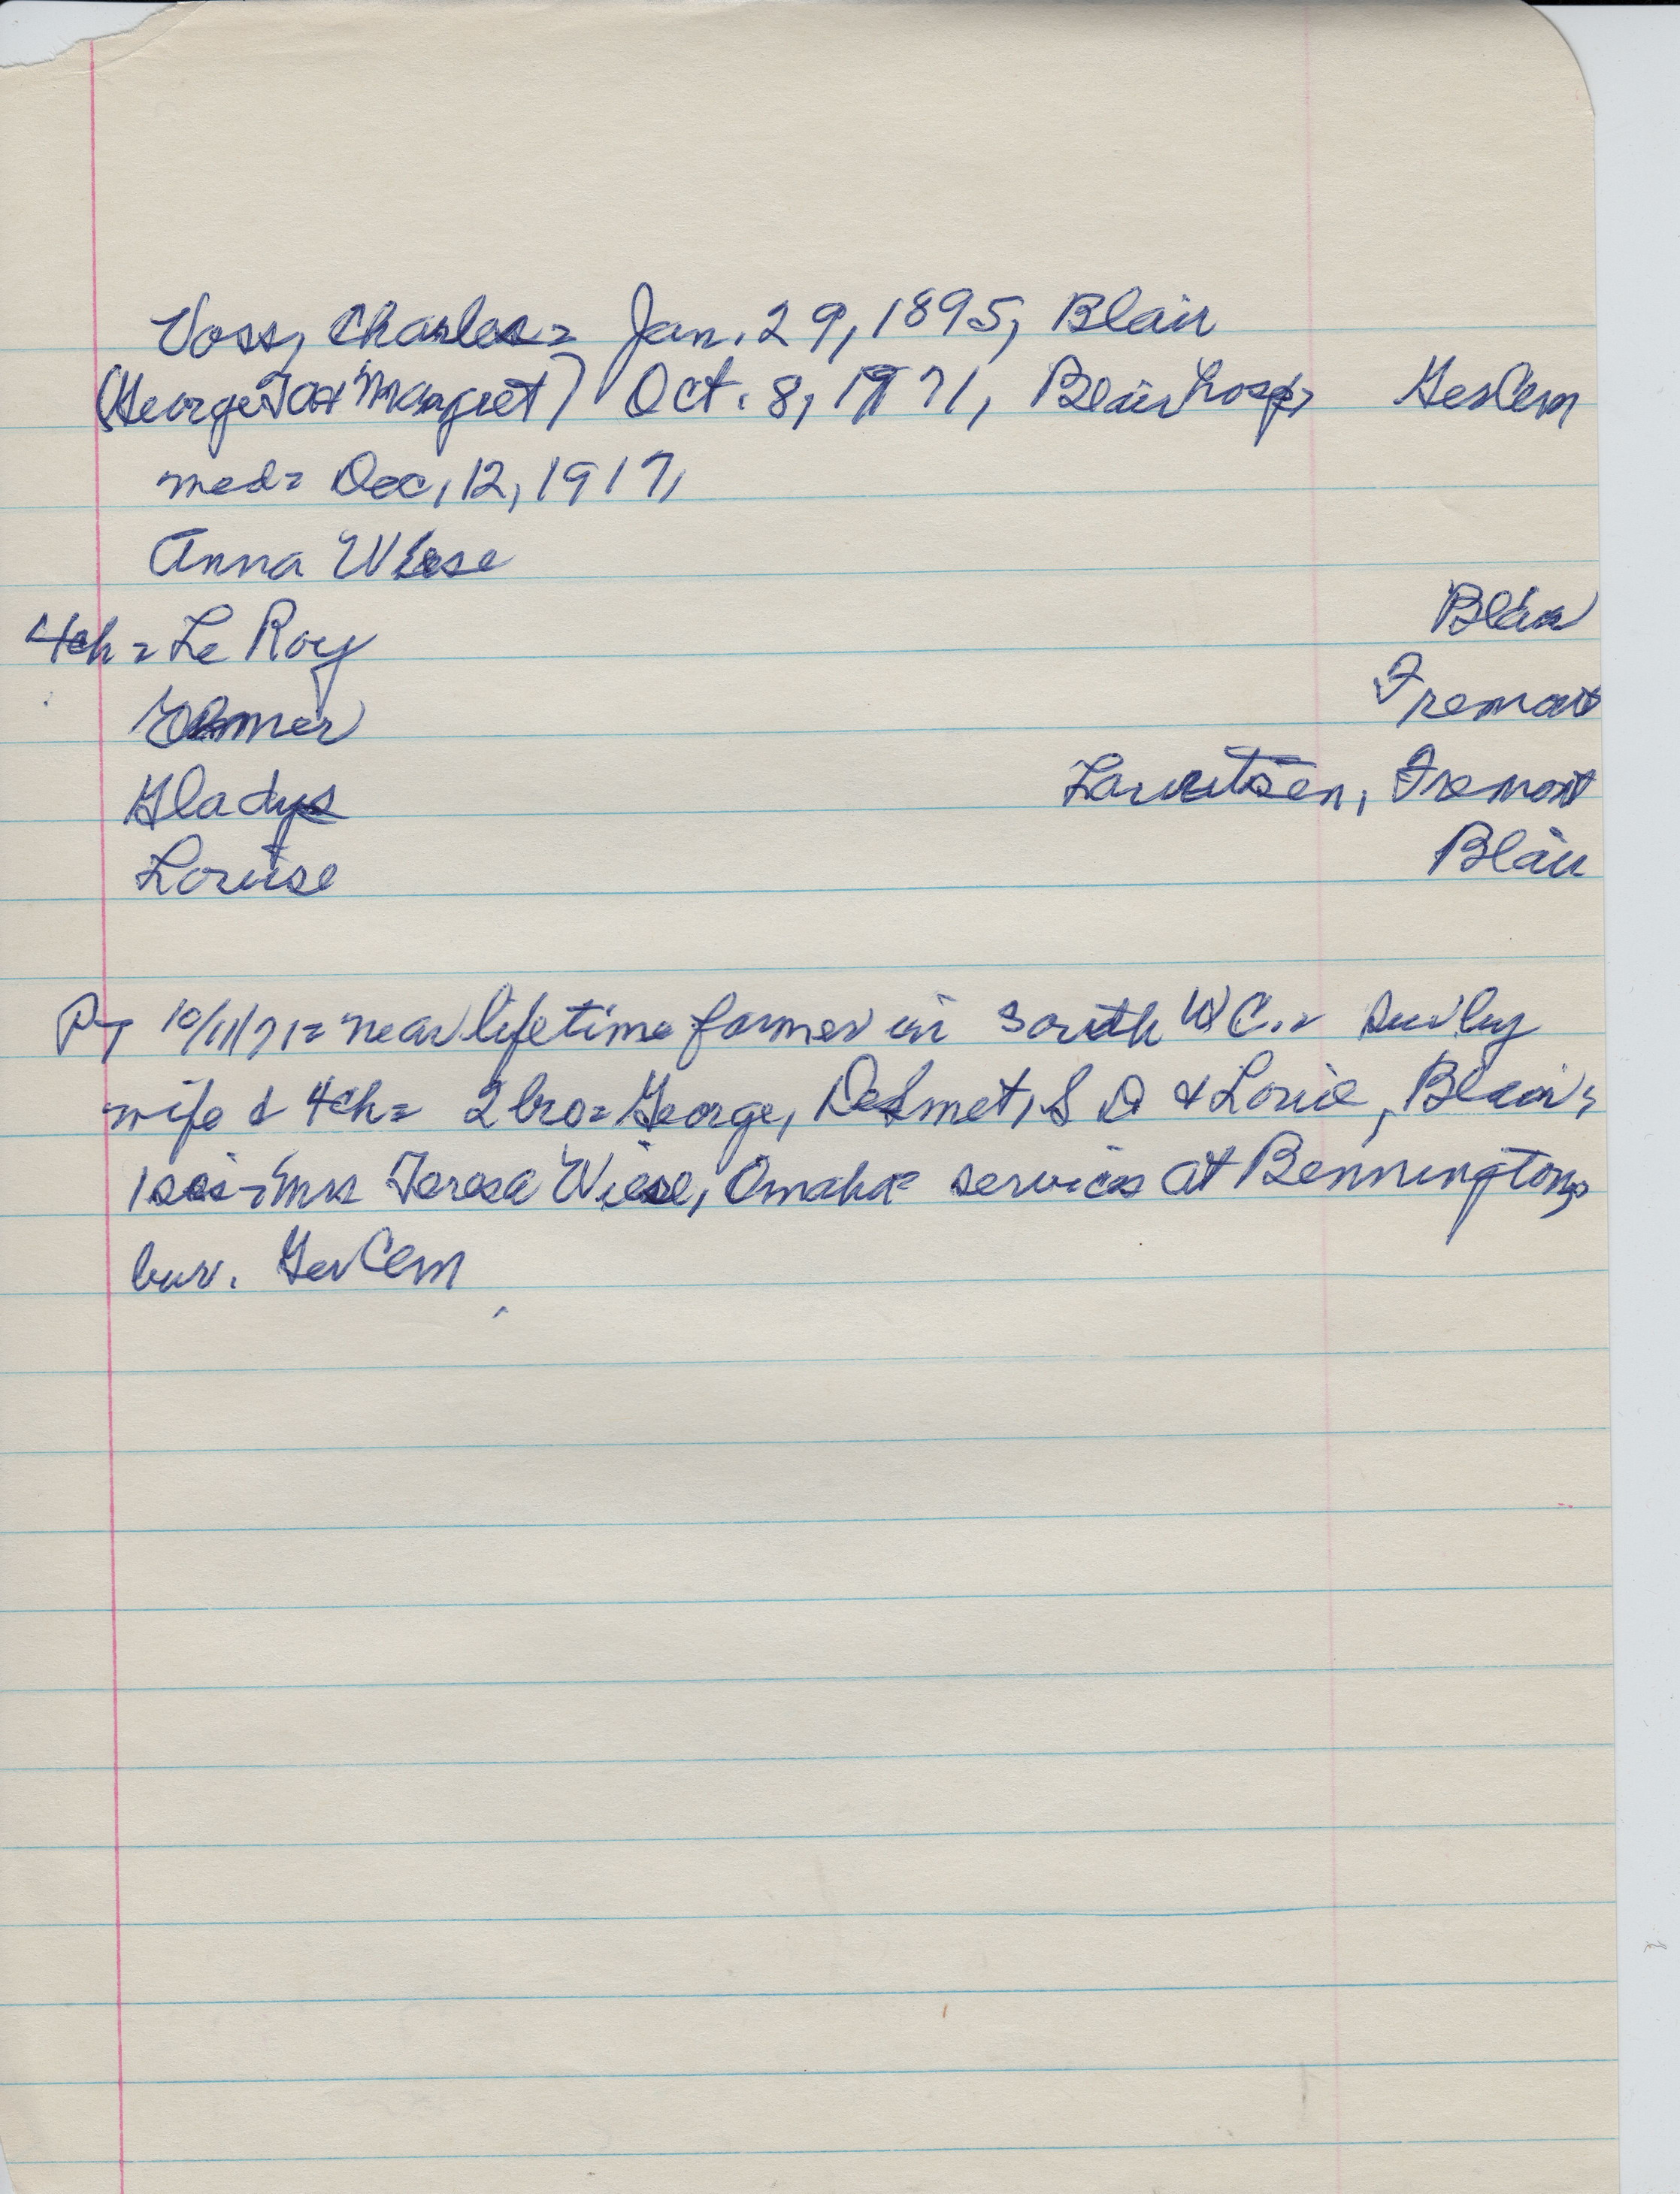 Voss, Charles = Jan. 29, 1895, Blair
(George & Margret) Oct. 8, 1971, Blair hosp, Ger Cem
med = Dec, 12, 1917,
Anna Wiese
4ch = Le Roy Blair
Elmer Fremont
Gladys Lauritsen, Fremont
Louise Blair
PT 10/11/71 = near lifetime farmer in south W C. = Surv by
wife & 4ch = 2 bro = George, DeSmet, S D & Louie, Blair,
1 sis - Mrs Teresa Wiese, Omaha = services at Bennington,
bur. Ger Cem